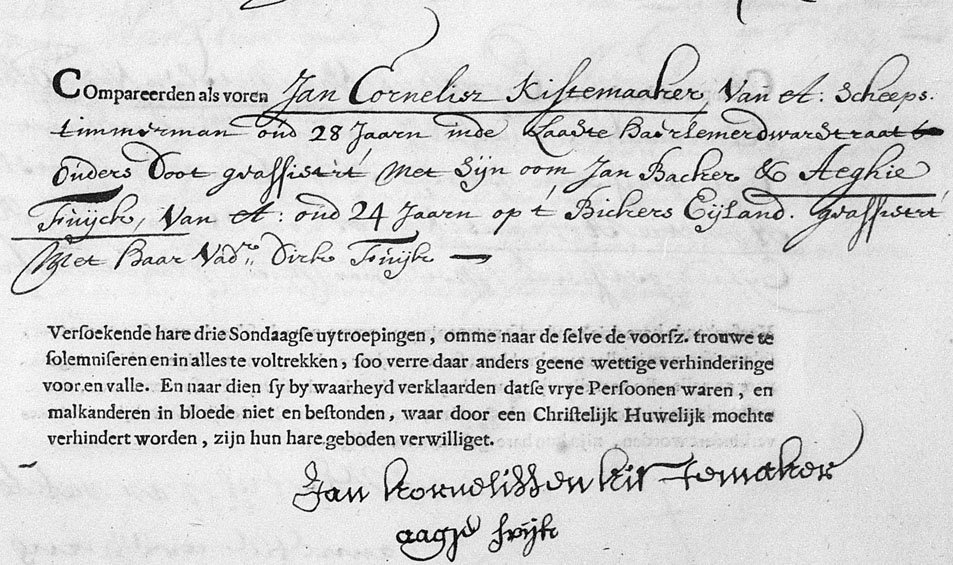 Compareerden als voren Jan Cornelisz Kistemaaker, Van A: Scheeps.
timmerman oud 28 Jaaren inde Laaste Haerlemerdwarsstraat
ouders doot geassisteert met Sijn oom Jan Backer & Aeghie
Fuijck, Van A: oud 24 Jaaren op 't Bickers Eijland. geassisteert
Met Haar Vader Dirk Fuijk
Versoekende hare drie Sondaagse uytroepingen, omme naar de selve de voorsz. trouwe te
solemniseren en in alles te voltrekken, soo verre daar anders geene wettige verhinderinge
voor en valle. En naar dien sy by waarheyd verklaarden datse vrye Persoonen waren, en
malkanderen in bloede niet en bestonden, waar door een Christelijk Huwelijk mochte
verhindert worden, zijn hun hare geboden verwilliget.
Jan Kornelissen Kistemaker
aagje fuijk